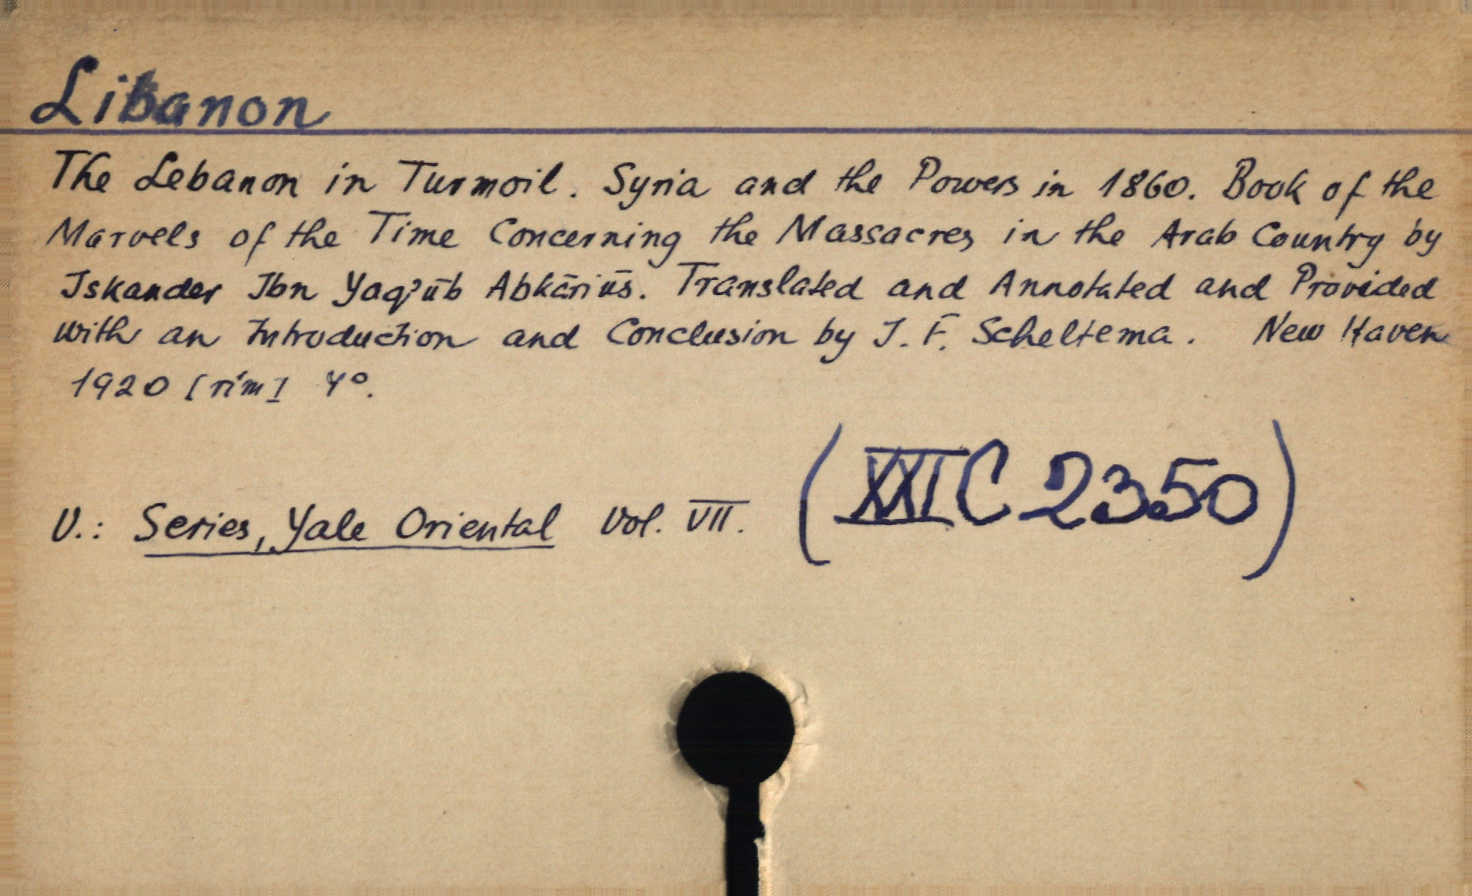 Libanon
The Lebanon in Turmoil. Syria and the Powers in 1860. Book of the
Marvels of the Time Concerning the Massacres in the Arab Country by
Iskander Ibn Yaqʾūb Abkāriūs. Translated and Annotated and Provided
with an Introduction and Conclusion by J. F. Scheltema. New Haven
1920 [rim] 4°.
(XXI C 2350)
V.: Series, Yale Oriental Vol. VII.